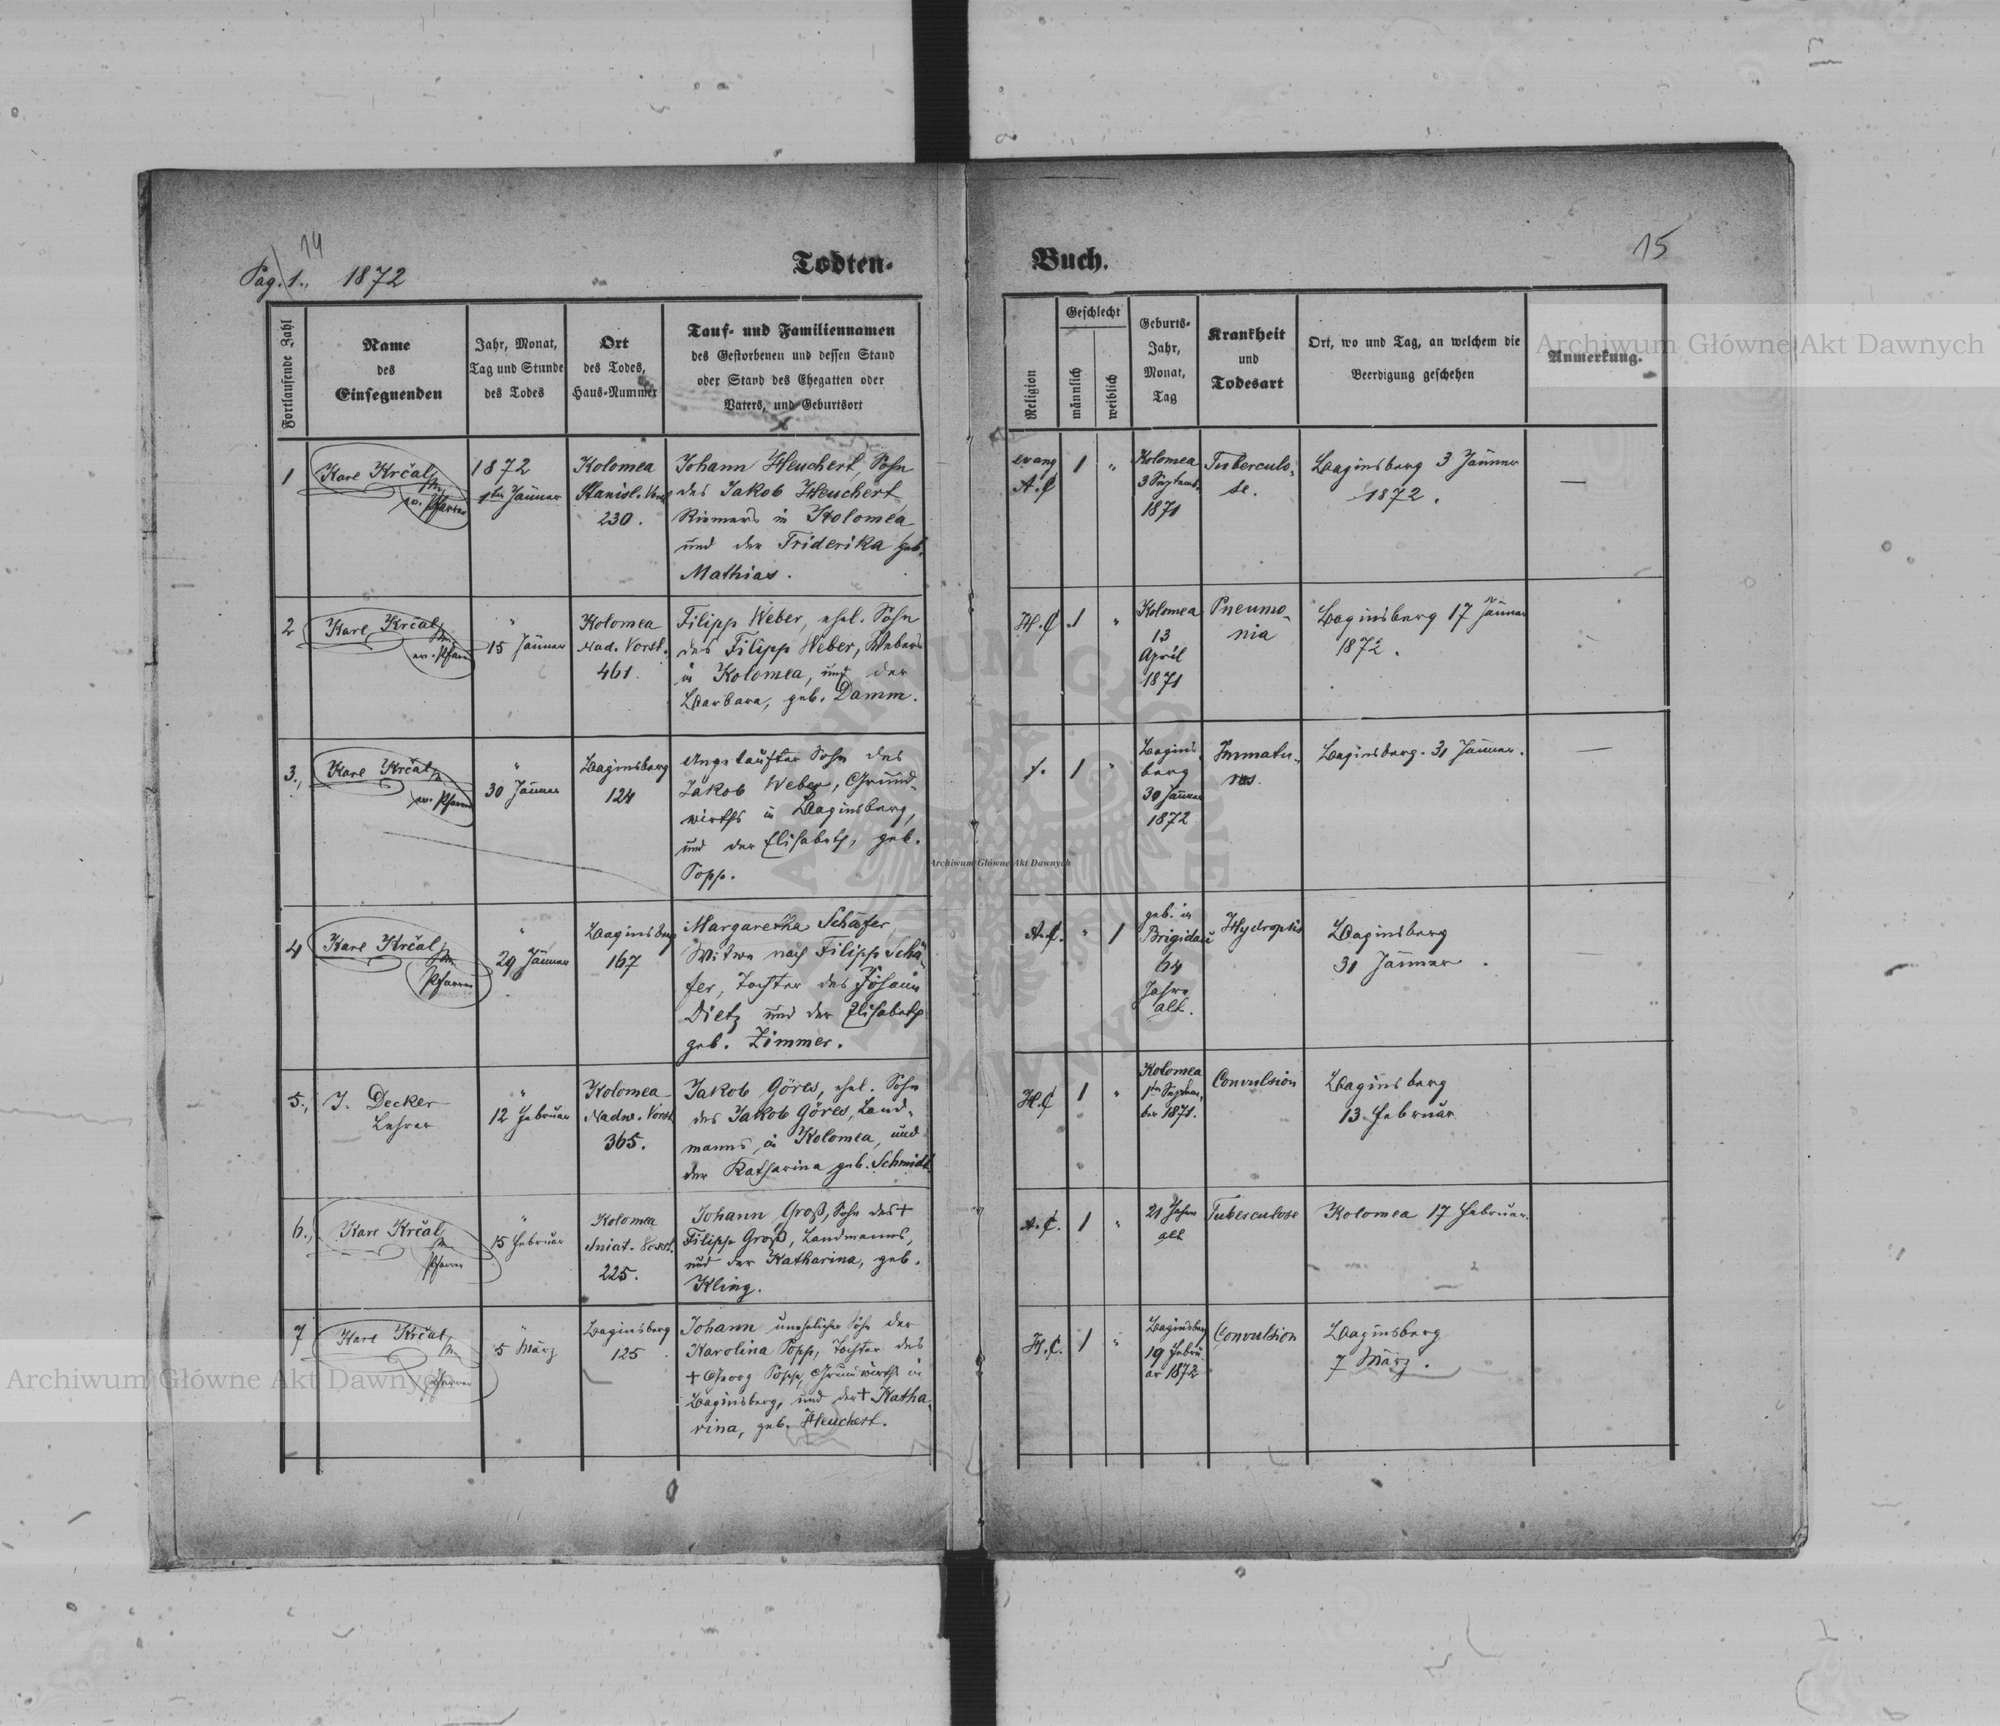 14
Pag. 1., 1872
Todten-
Fortlaufende Zahl
Name
des
Einsegnenden
Jahr, Monat,
Tag und Stunde
des Todes
Ort
des Todes,
Haus-Nummer
Tauf- und Familiennamen
des Gestorbenen und dessen Stand
oder Stand des Ehegatten oder
Vaters, und Geburtsort
1
Karl Krčal
ev. Pfarrer
1872
1ten Jänner
Kolomea
Stanisl. Vorst
230.
Johann Heuchert, Sohn
des Jakob Heuchert
Riemers in Kolomea
und der Friderika geb.
Mathias.
2
Karl Krčal
ev. Pfarrer
"
15 Jänner
Kolomea
Nad. Vorst.
461.
Filipp Weber, ehel. Sohn
des Filipp Weber, Webers
in Kolomea, und der
Barbara, geb. Damm.
3.,
Karl Krčal
ev. Pfarrer
"
30 Jänner
Baginsberg
124
Ungetaufter Sohn des
Jakob Weber, Grund-
wirths in Baginsberg,
und der Elisabeth, geb.
Popp.
4
Karl Krčal
Pfarrer
"
29 Jänner
Baginsberg
167
Margaretha Schäfer,
Witwe nach Filipp Schä-
fer, Tochter des Johann
Dietz und der Elisabeth
geb. Zimmer.
5.,
J. Decker
Lehrer
"
12 Februar
Kolomea
Nadw. Vorst.
365.
Jakob Göres, ehel. Sohn
des Jakob Göres, Land-
manns in Kolomea, und
der Katharina geb. Schmidt.
6.,
Karl Krčal
Pfarrer
"
15 Februar
Kolomea
Sniat. Vorst.
225.
Johann Groß, Sohn des +
Filipp Groß, Landmanns,
und der Katharina, geb.
Kling.
7
Karl Krčal
Pfarrer
"
5 März
Baginsberg
125
Johann unehelicher Sohn der
Karolina Popp, Tochter des
+ Georg Popp, Grundwirths in
Baginsberg, und der + Katha-
rina, geb. Heuchert.
15
Buch.
Religion
Geschlecht
männlich
weiblich
Geburts-
Jahr,
Monat,
Tag
Krankheit
und
Todesart
Ort, wo und Tag, an welchem die
Beerdigung geschehen
Anmerkung.
evang
A.C
1
"
Kolomea
3 Septemb.
1871
Tuberculo-
se.
Baginsberg 3 Jänner
1872.
—
H.C
1
"
Kolomea
13
April
1871
Pneumo-
nia
Baginsberg 17 Jänner
1872.
1
"
Bagins
berg
30 Jänner
1872
Immatu-
rus.
Baginsberg. 31 Jänner.
—
A.C.
"
1
geb. in
Brigidau
64
Jahre
alt.
Hydropsis
Baginsberg
31 Jänner.
H.C
1
"
Kolomea
1ten Septem-
ber 1871.
Convulsion
Baginsberg
13 Februar
A.C.
1
"
21 Jahre
alt
Tuberculose
Kolomea 17 Februar.
H.C.
1
"
Baginsberg
19 Febru
ar 1872
Convulsion
Baginsberg
7 März.
Archiwum Główne Akt Dawnych
Archiwum Główne Akt Dawnych
Archiwum Główne Akt Dawnych
ARCHIWUM GŁÓWNE AKT DAWNYCH